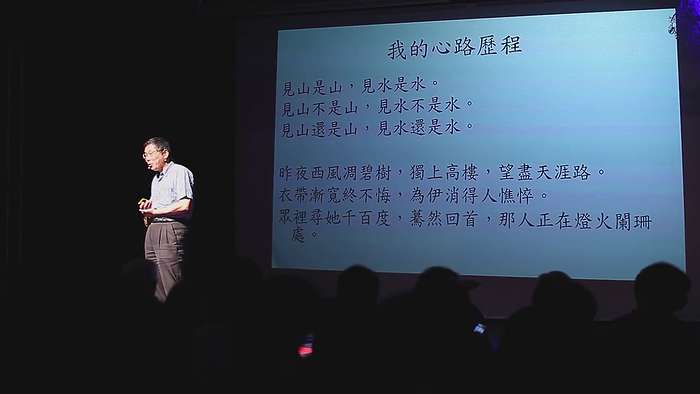 我的心路歷程
見山是山，見水是水。
見山不是山，見水不是水。
見山還是山，見水還是水。
昨夜西風凋碧樹，獨上高樓，望盡天涯路。
衣帶漸寬終不悔，為伊消得人憔悴。
眾裡尋她千百度，驀然回首，那人正在燈火闌珊
處。